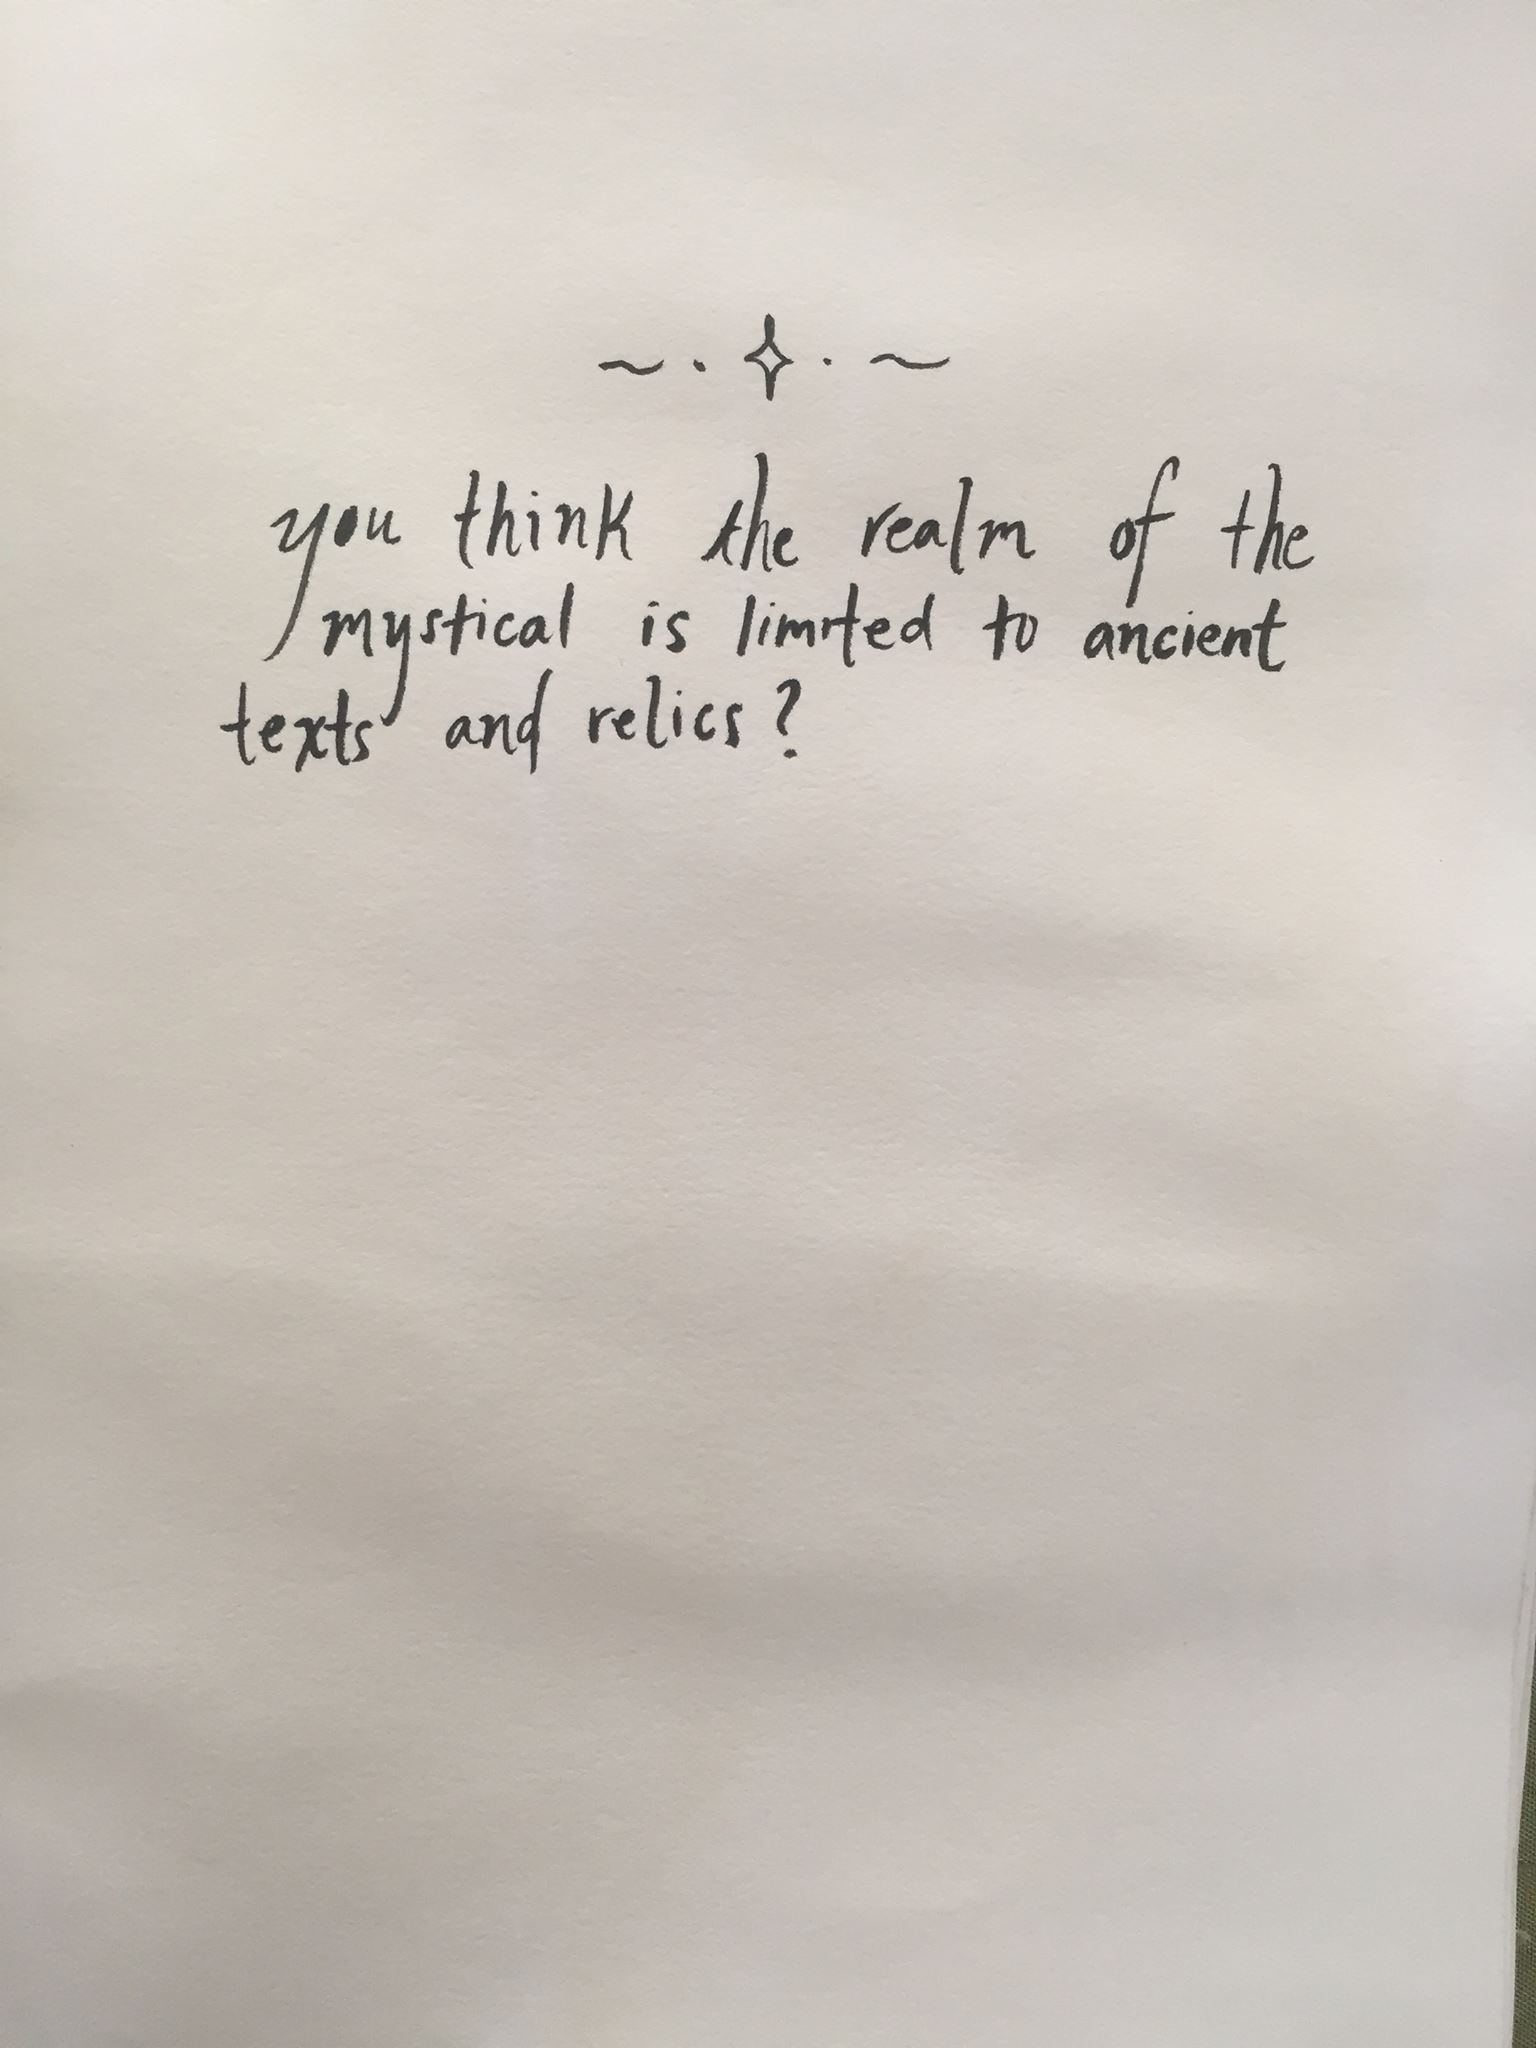 you think the realm of the
mystical is limited to ancient
texts and relics?